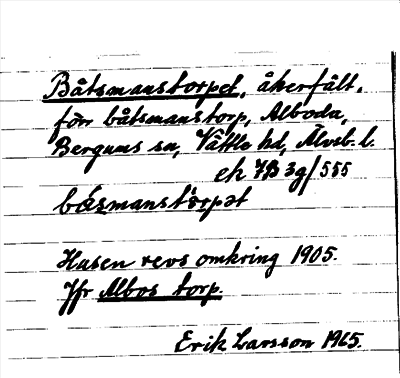 Båtsmanstorpet, åkerfält,
förr båtsmanstorp, Alboda,
Bergums sn, Vättle hd, Älvsb. l.
ek 7B 3g/555
båsmanstɔrpət
Husen revs omkring 1905.
Jfr Albos torp.
Erik Larsson 1965.